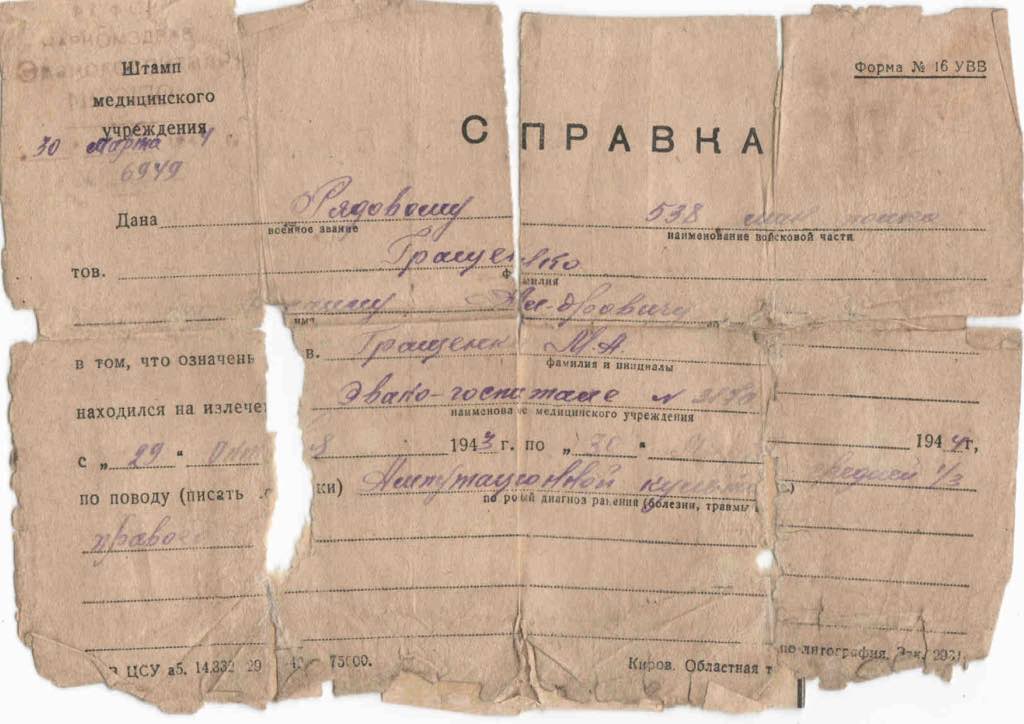 Штамп
Форма № 16 УВВ
медицинского
учреждения
30 марта 4
6949
СПРАВКА
Дана Рядовому 538
военное звание наименование войсковой части
тов. Гращенко
фамилия
имя
в том, что означен в. Гращенк М.А.
фамилия и инициалы
находился на излече Эвако-госпитале №
наименова е медицинского учреждения
с „29" 1943 г. по „30" 1944 г,
по поводу (писать ки) Ампутационной средней 1/3
по р ый диагноз ранения (болезни, травмы
право
ЦСУ аб. 14.332 29 75000. Киров. Областная т по-литография. Зак.